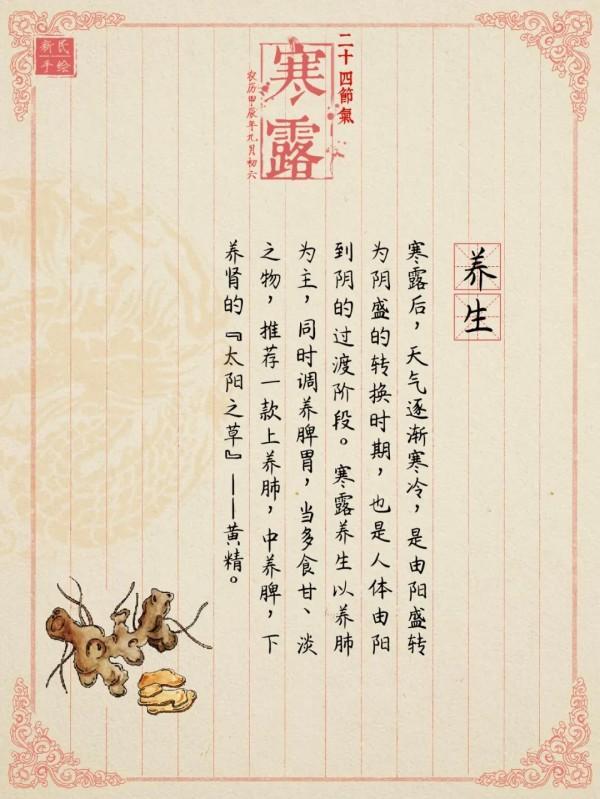 新民
手绘
二十四節氣
寒露
农历甲辰年九月初六
养生
寒露后，天气逐渐寒冷，是由阳盛转
为阴盛的转换时期，也是人体由阳
到阴的过渡阶段。寒露养生以养肺
为主，同时调养脾胃，当多食甘、淡
之物，推荐一款上养肺，中养脾，下
养肾的『太阳之草』——黄精。